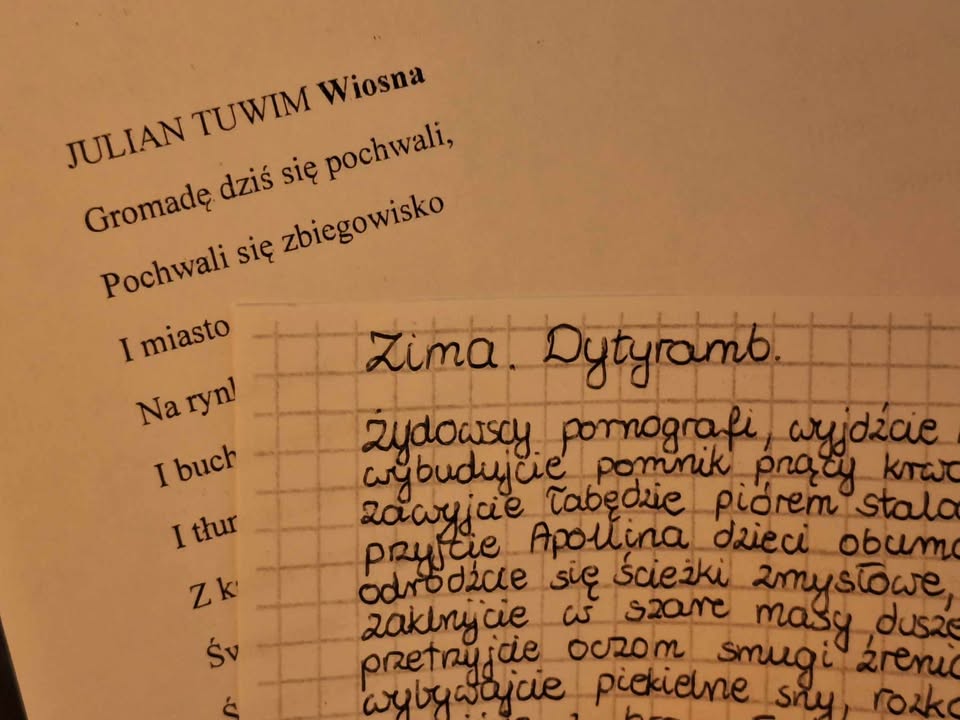 JULIAN TUWIM Wiosna
Gromadę dziś się pochwali,
Pochwali się zbiegowisko
I miasto
Na rynk
I buch
I tłur
Z k
Św
Ś
Zima. Dytyramb.
Żydowscy pornografi, wyjdźcie
wybudujcie pomnik prący krwa
zawyjcie łabędzie piórem stala
przyjcie Apollina dzieci obuma
odródźcie się ścieżki zmysłowe,
zaklnijcie w szare masy dusze
przetrzyjcie oczom smugi źrenic
wybywajcie piekielne sny, rozko